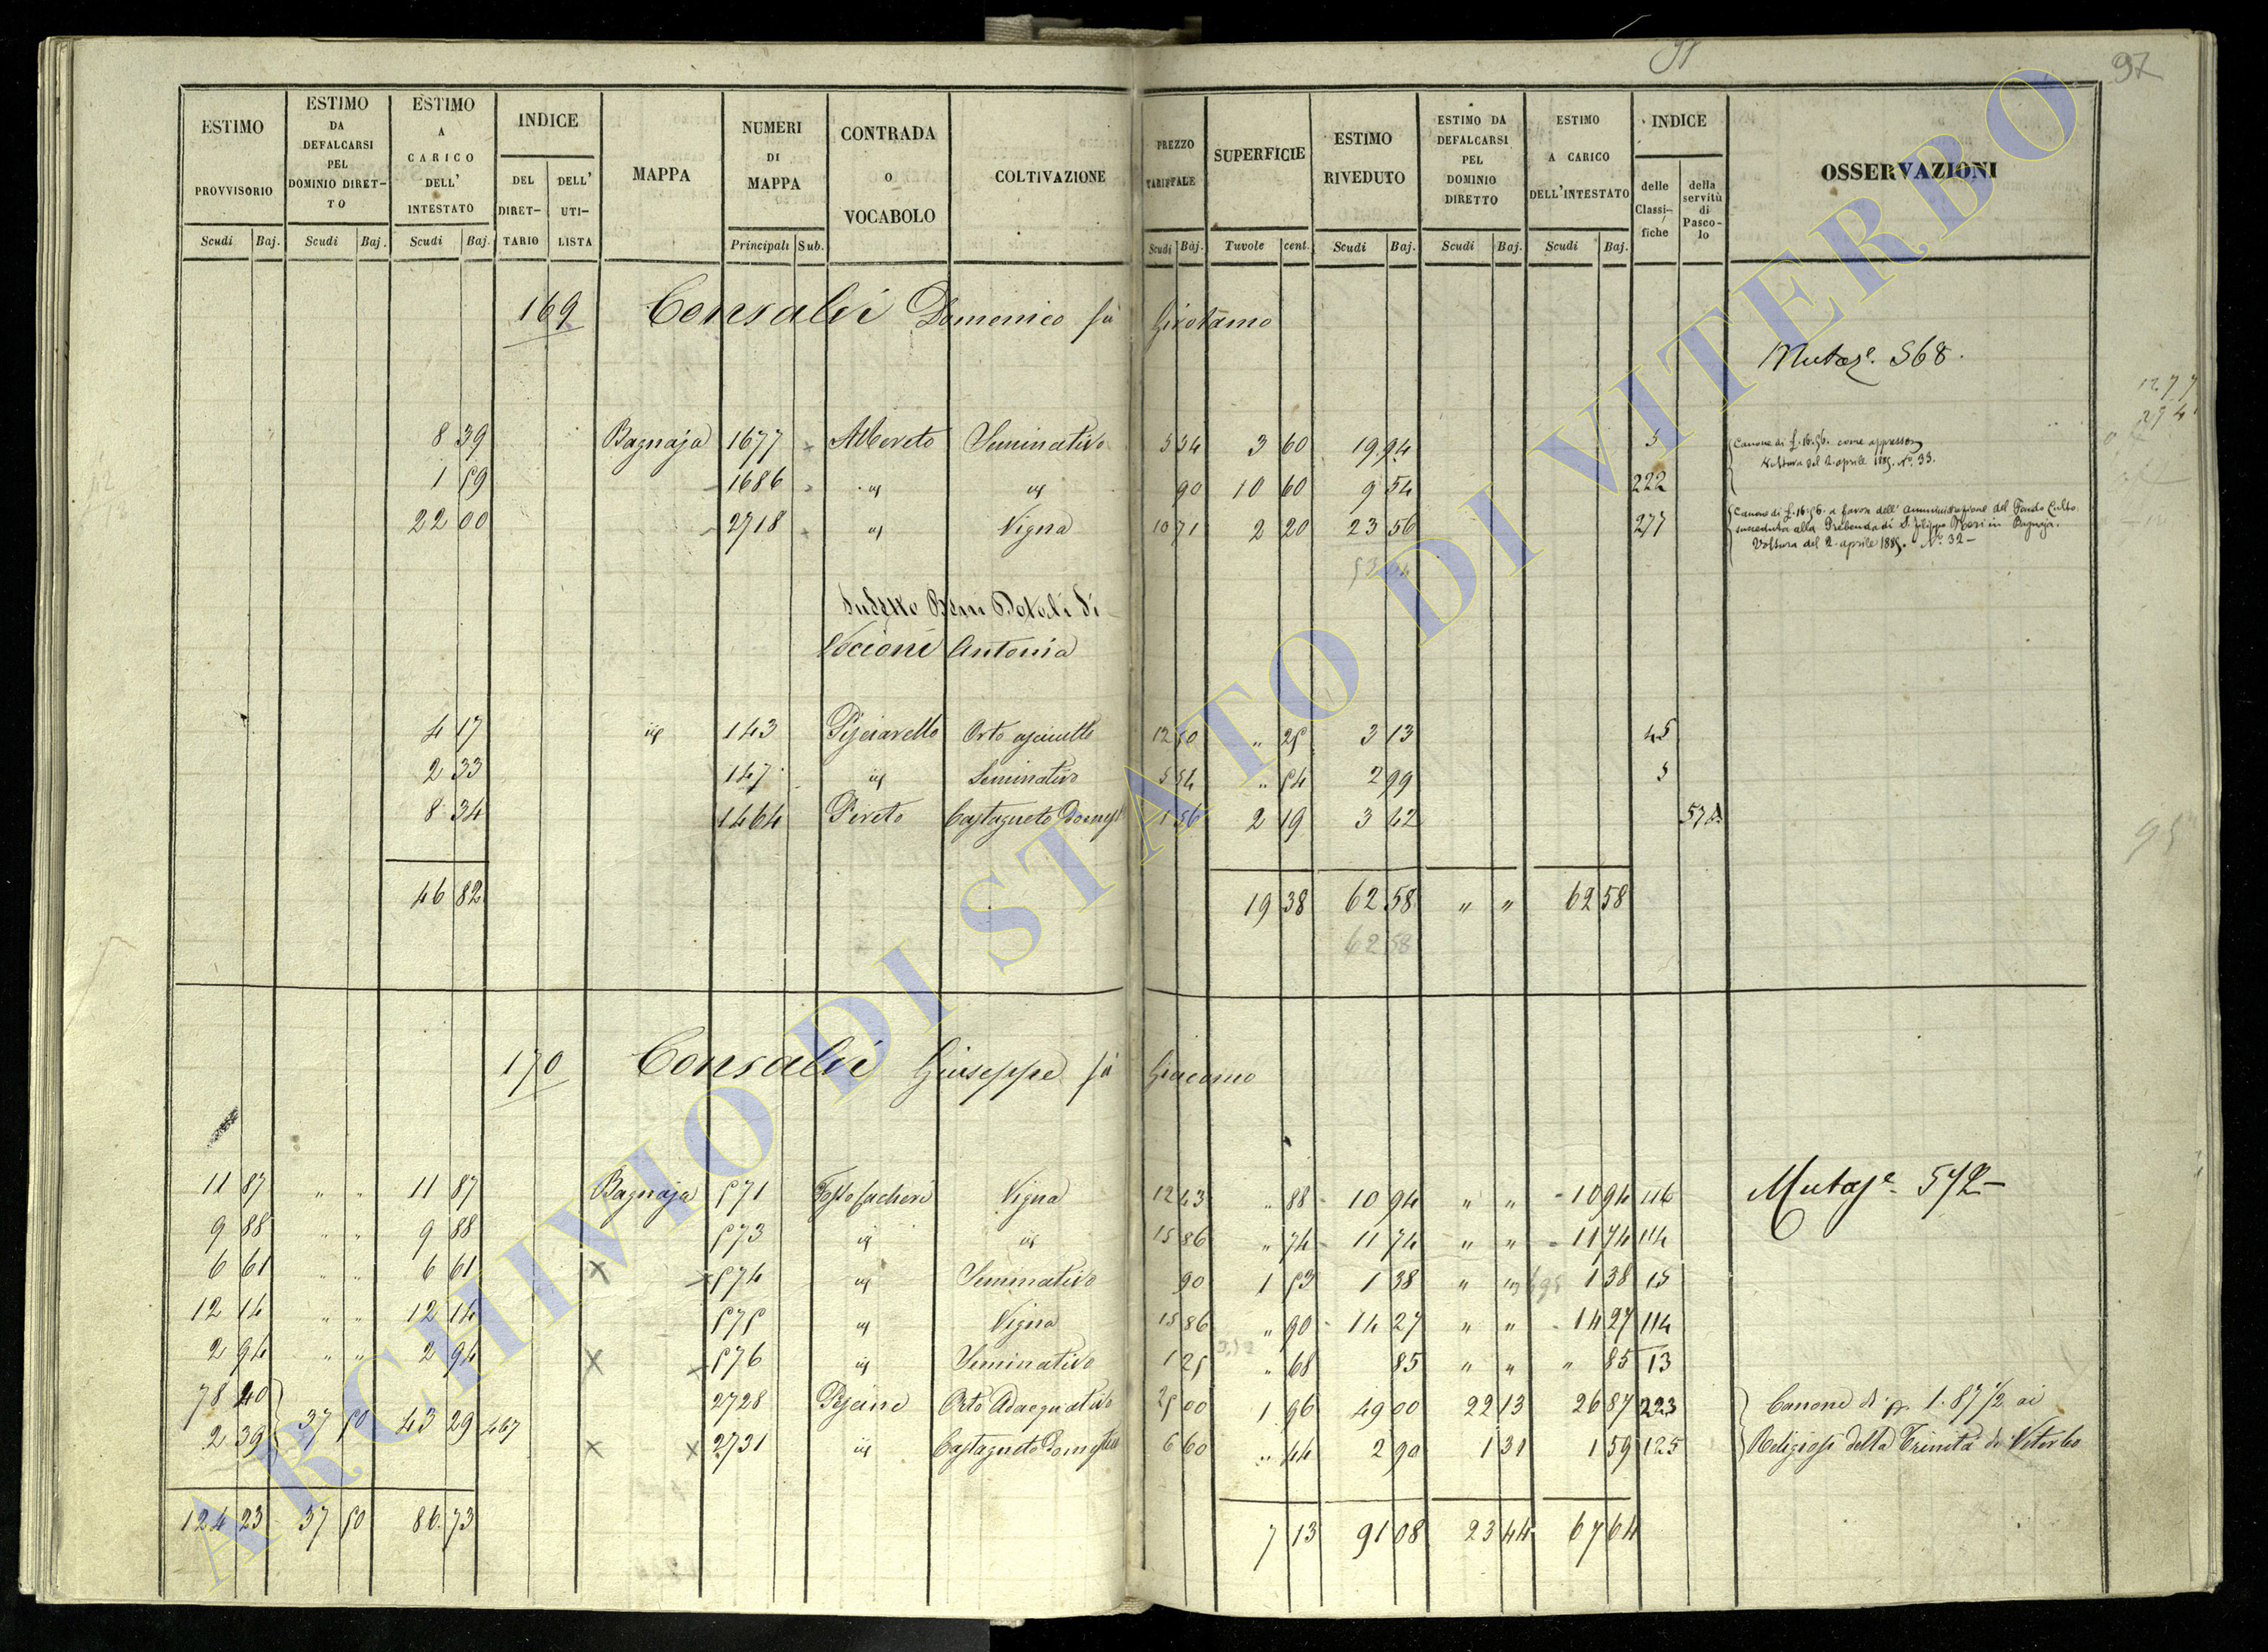 97
ESTIMO PROVVISORIO
ESTIMO DA DEFALCARSI PEL DOMINIO DIRETTO
ESTIMO A CARICO DELL' INTESTATO
INDICE
DEL DIRETTARIO
DELL' UTILISTA
MAPPA
NUMERI DI MAPPA
CONTRADA o VOCABOLO
COLTIVAZIONE
PREZZO TARIFFALE
SUPERFICIE
ESTIMO RIVEDUTO
ESTIMO DA DEFALCARSI PEL DOMINIO DIRETTO
ESTIMO A CARICO DELL'INTESTATO
INDICE
delle Classifiche
della servitù di Pascolo
OSSERVAZIONI
Scudi Baj. Scudi Baj. Scudi Baj. Principali Sub. Scudi Baj. Tavole cent. Scudi Baj. Scudi Baj. Scudi Baj.
169 Consalvi Domenico fù Girolamo
Mutaze. 568.
8 39 Bagnaja 1677 Albereto Seminativo 5 54 3 60 19 94 5
Canone di £. 16.96. come appresso
Voltura del 2. aprile 1885. No. 33.
1 59 1686 id id 90 10 60 9 54 222
22 00 2718 id Vigna 10 71 2 20 23 56 277
Canone di £. 16.96. a favore dell' Amministrazione del Fondo Culto
succeduta alla Prebenda di S. Filippo Neri in Bagnaja.
Voltura del 2. aprile 1885. No. 32 -
Sudetto Beni Dotali di
Cocioni Antonia
4 17 id 143 Pisciarello Orto asciutto 12 50 " 25 3 13 45
2 33 147 id Seminativo 5 54 " 54 2 99 5
8 34 1464 Pereto Castagneto Domest 1 56 2 19 3 42
46 82 19 38 62 58 " " 62 58
62 58
170 Consalvi Giuseppe fù Giacomo
11 87 " " 11 87 Bagnaja 571 Vigna 12 43 " 88 10 94 " " 10 94 116
Mutaze. 572 -
9 88 " " 9 88 573 id id 15 86 " 74 11 74 " " 11 74 114
6 61 " " 6 61 X 574 id Seminativo 90 1 53 1 38 " " 1 38 15
12 14 " " 12 14 575 id Vigna 15 86 " 90 14 27 " " 14 27 114
2 94 " " 2 94 X 576 id Seminativo 1 25 " 68 85 " " " 85 13
78 40 2728 Piscine Orto Adaequativo 25 00 1 96 49 00 22 13 26 87 223
Canone di 1. 87 1/2 ai
2 39 37 50 43 29 467 X X 2731 id Castagneto Domest 6 60 " 44 2 90 1 31 1 59 125
Religiosi della Trinità di Viterbo
124 23 37 50 86 73 7 13 91 08 23 44 67 64
ARCHIVIO DI STATO DI VITERBO